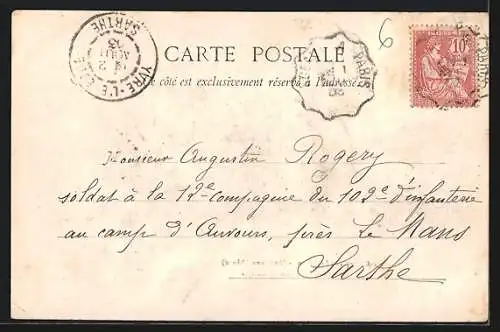 CARTE POSTALE
Ce côté est exclusivement réservé à l'adresse
6
YVRE-L'EVEQUE
SARTHE
PARIS
10
Monsieur Augustin Rogery
soldat à la 12e compagnie du 102e d'infanterie
au camp d'Auvours, près Le Mans
Sarthe